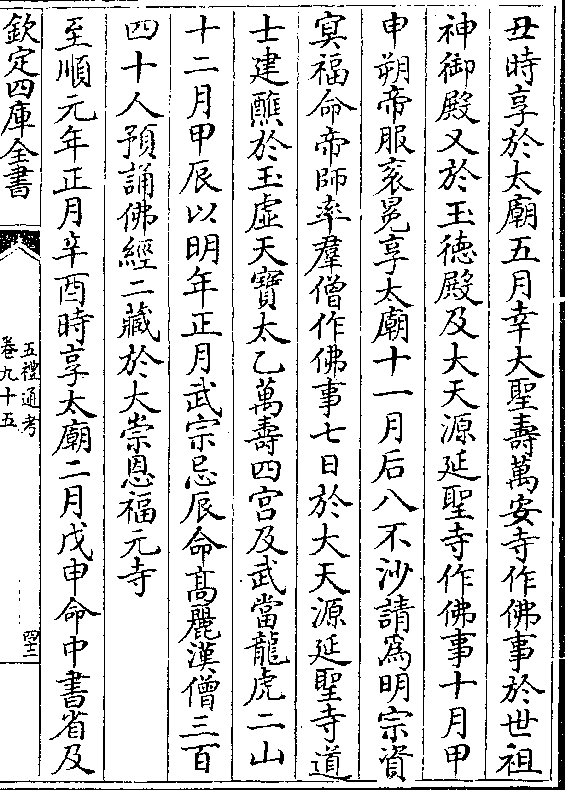 丑時享於太廟五月幸大聖壽萬安寺作佛事於世祖
神御殿又於玉德殿及大天源延聖寺作佛事十月甲
申朔帝服衮冕享太廟十一月后八不沙請為明宗資
冥福命帝師率羣僧作佛事七日於大天源延聖寺道
士建醮於玉虛天寶太乙萬壽四宫及武當龍虎二山
十二月甲辰以明年正月武宗忌辰命髙麗漢僧三百
四十人預誦佛經二藏於大崇恩福元寺
至順元年正月辛酉時享太廟二月戊申命中書省及
欽定四庫全書
五禮通考
卷九十五
四士